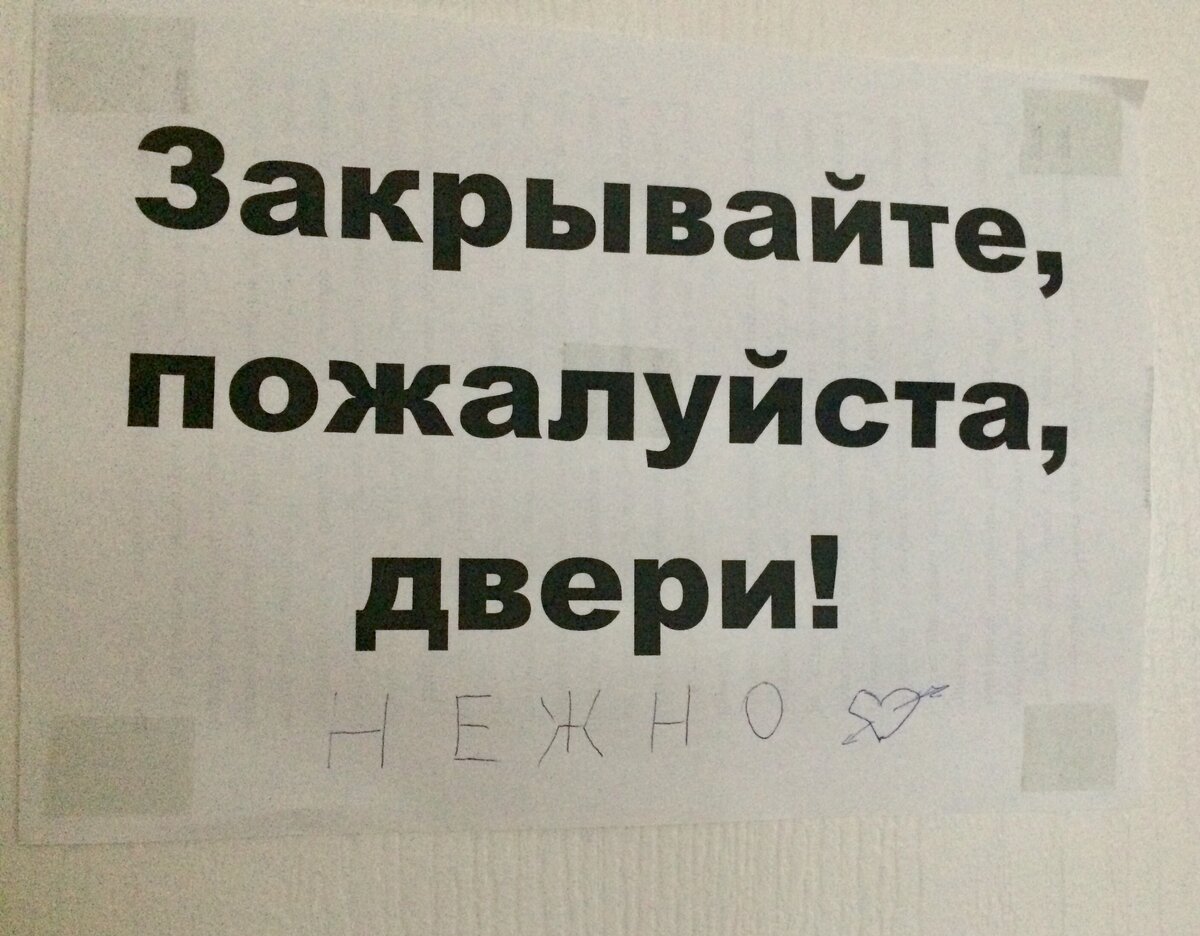 Закрывайте,
пожалуйста,
двери!
НЕЖНО